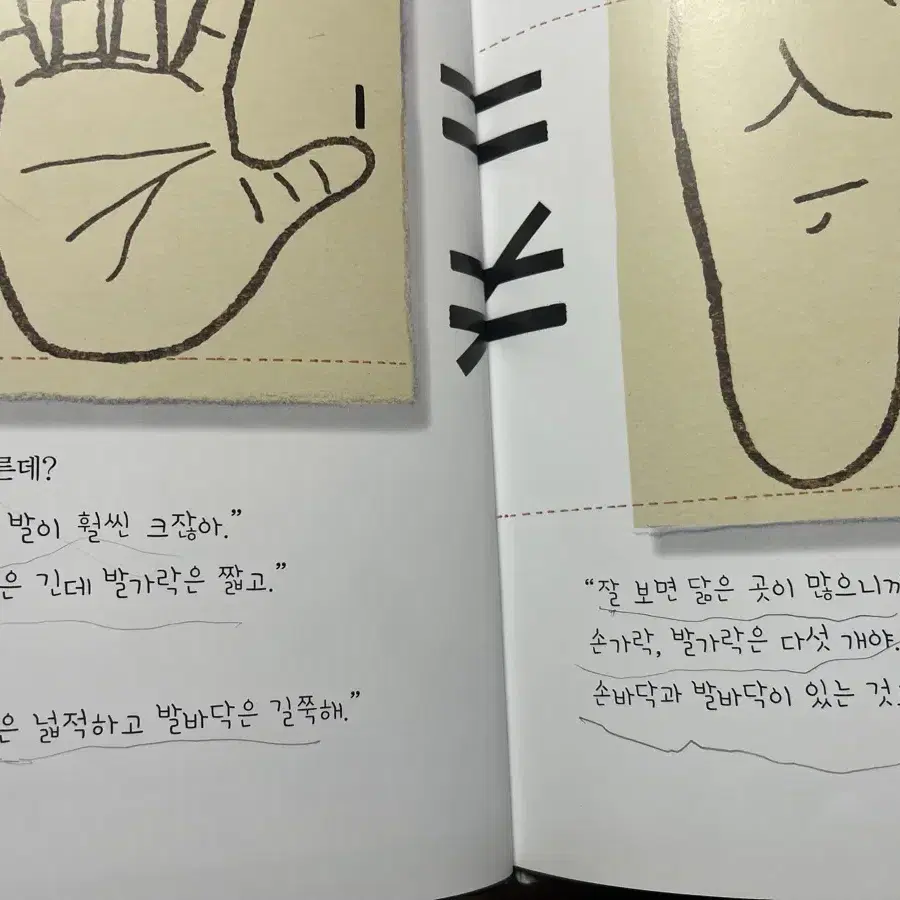 른데?
발이 훨씬 크잖아.”
은 긴데 발가락은 짧고.”
은 넓적하고 발바닥은 길쭉해.”
“잘 보면 닮은 곳이 많으니까
손가락, 발가락은 다섯 개야.
손바닥과 발바닥이 있는 것